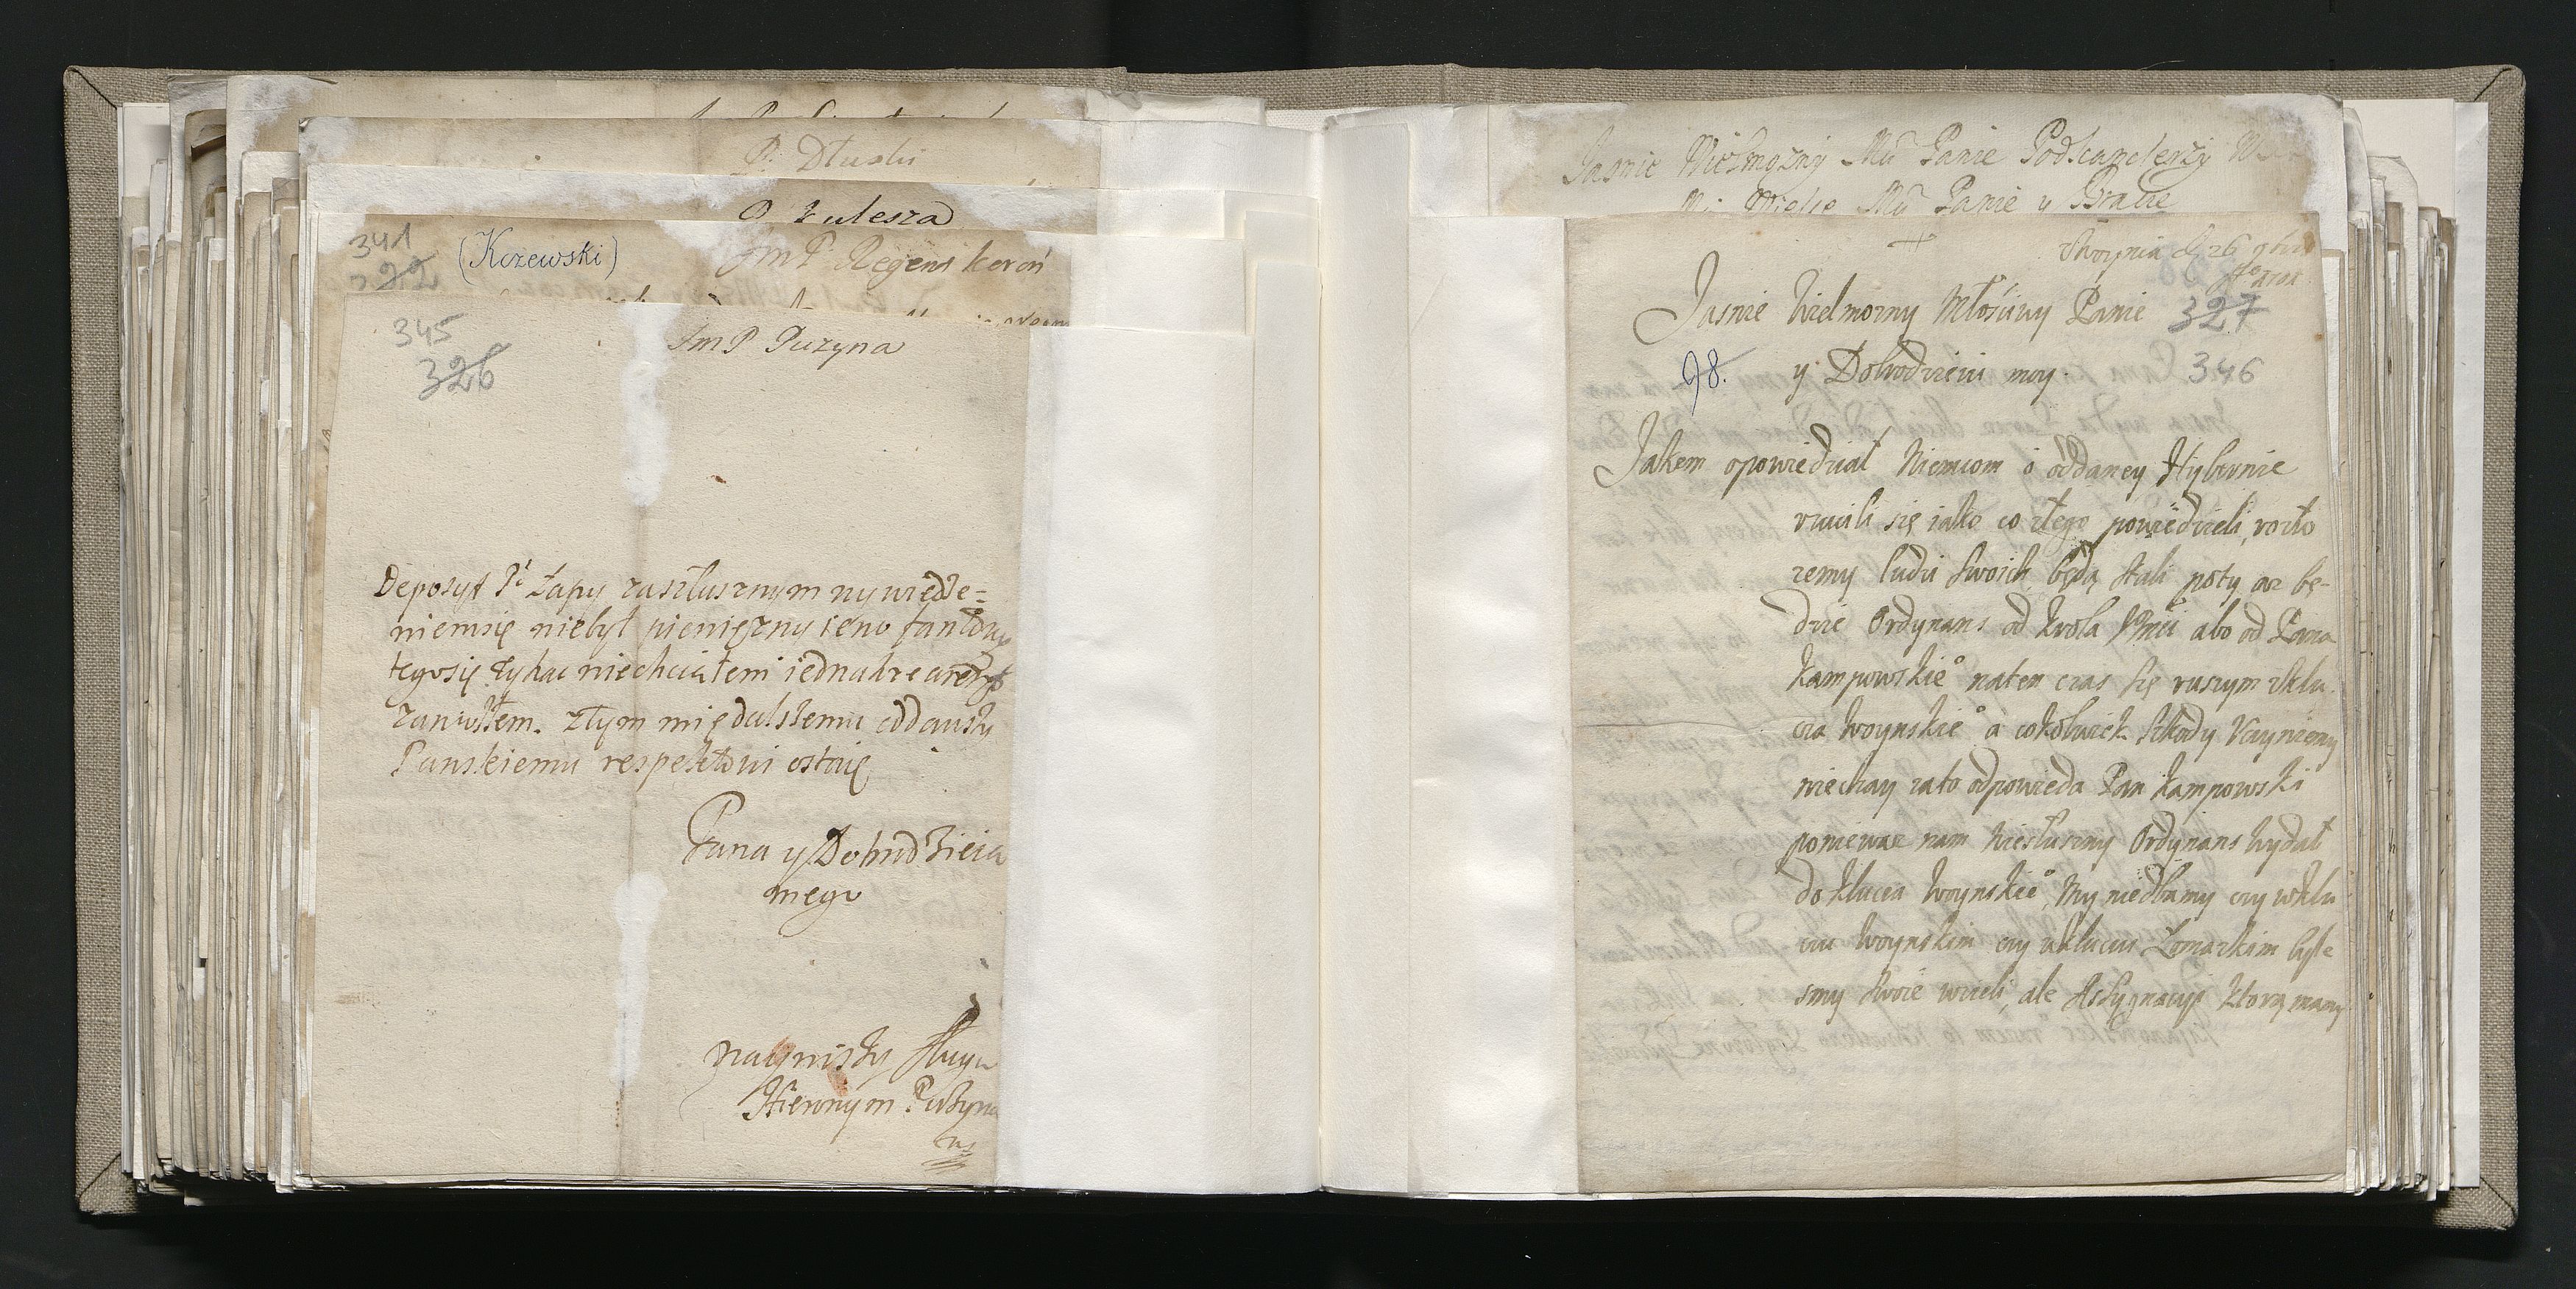 P. Dłuski
P. Kulesza
341
(Kczewski)
JmP Regens koroń
345
326
JmP Puzyna
Deposyt Pͥ Łapy zasłusznym wywiedze=
niemsię niebył pieniężny ieno fantowy
tegosię tykac niechciałem iednakze areszt
zaniosłem. ztym mię dalszemu oddawszy
Panskiemu respektowi ostaię
Pana y Dobrodzieia
mego
nayniszy sługa
Hieronym Puzyna
Jasnie Wielmozny Mci Panie Podkanclerzy
Mci Panie y Bracie
Woynia d 26
Jasnie Wielmozny Młosciwy Panie 327
98. y Dobrodzieiu moy. 346
Jakem opowiedział Niemcom o oddaney Hybernie
rzucili się iako co złego powiedzieli, ze
ludzi swoich będą stali poty az bę-
dzie Ordynans od krola Jmci abo od Pana
Kampowskieͦ naten czas się ruszym zklu-
cza Woynskieͦ a cokolwiek szkody Vczyniemy
niechay zato odpowieda Pan Kampowski
poniewaz nam niesłuszny Ordynans wydał
do klucza Woynskieͦ, my niedbamy czy wklu
czu Woynskim czy wkluczu Łomaskim byle
smy swoie wzieli, ale Assygnacyi ktorą mamy